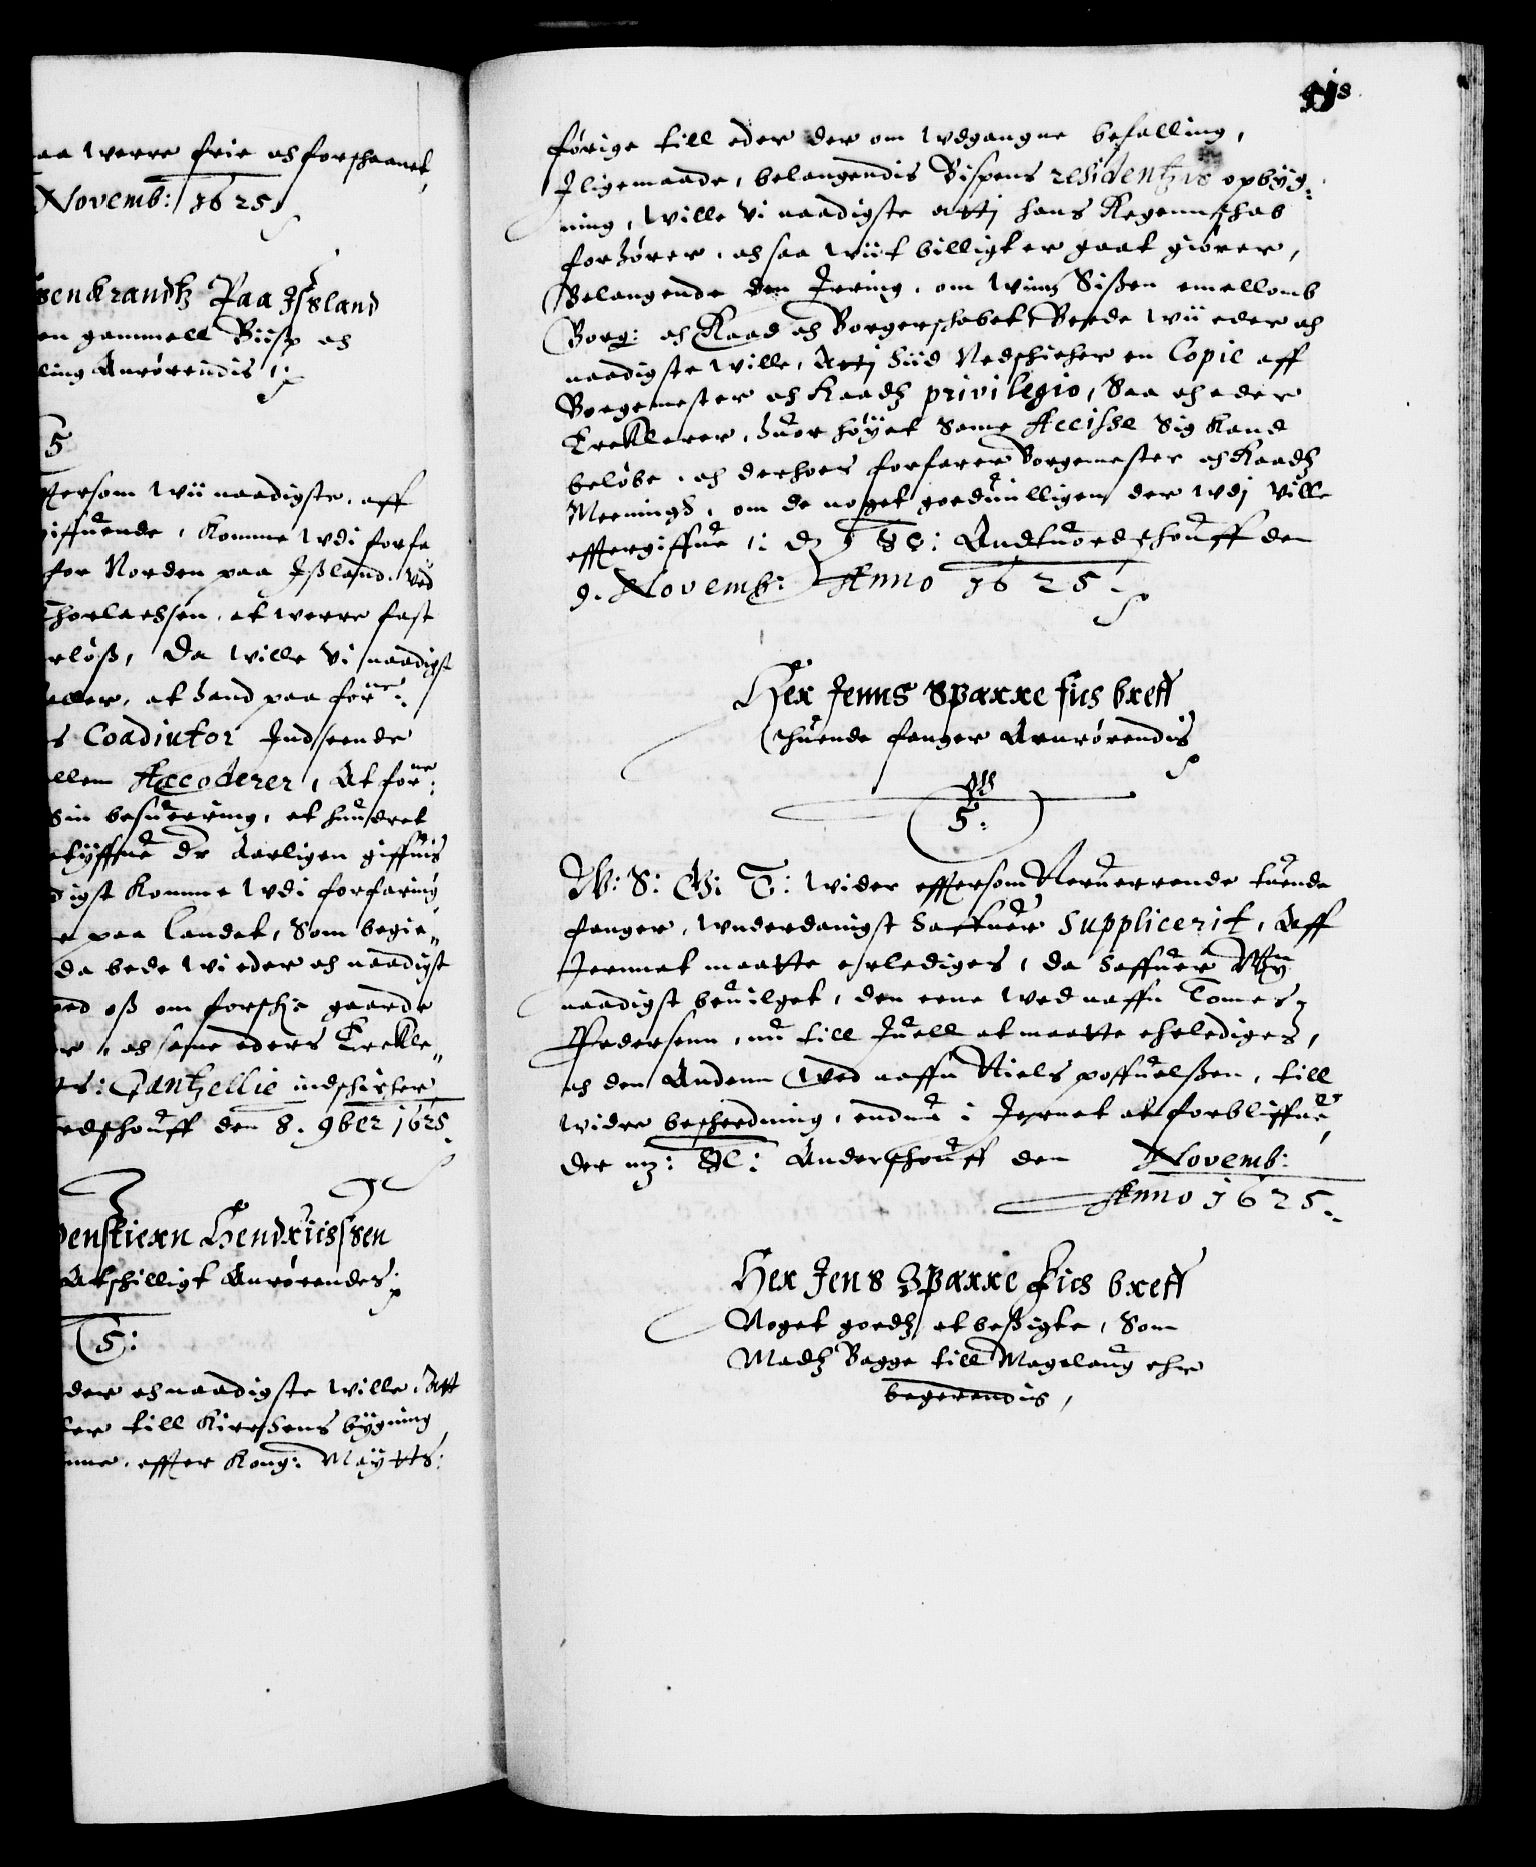 aa werre frie och forschaanet,
Novemb: 1625
senkrandtz Paa Jsland
en gammell Biisp och
ling Anrørendis
5
ttersom wii naadigste, aff
iffuende, komme wdi forfa
for Norden paa Jßland, ved
Thorlachssen, at werre fast
rløß, Da wille vi naadigst
eller, at hand paa forne:
s Coadiutor Indseende
ellem Accoderer, At forne:
Sin besuering, et hundret
etÿffue dr Aarligen giffuis
digst komme wdi forfaring
r paa landet, Som begie„
da bede wi eder och naadigst
ved oß om forschr gaarde
r, och same eders Erckle„
ts: Cantzellie indschicker
edschouff den 8. 9ber 1625
Penstiern Hendriicssen
Atschilligt Anrørendes
5:
der och naadigste wille, Att
ler till Kirchens bÿgning
nne, effter Kong: Maÿtts:
førige till eder der om wdgangne befalling,
Jligemaade, belangendis Bispens residentzis opbÿg„
ning, wille vi naadigste atti hans Regennschab
forhører, och saa wiit billigt er gaat giører,
Belangende den Jrring, om wiin Sißen emellomb
Borg: och Raad och Borgerschabet, Beede wii eder och
naadigste wille, Atti hiid Nedschicher en Copie aff
Borgemester och Raadtz privilegio, Saa och eder
Ercklerer, huor høÿet Same Accisse Sig kand
beløbe, och derhoes forfarer Borgemester och Raadtz
Meeningh, om de noget goeduilligen der wdi ville
efftergiffue /: D Sc: Andtuordschouff den
9. Novemb: Anno 1625
Her Jenns Sparre fiis breff
thuende fanger Anrørendis
5:
W: S: G: T: wider effersom Neruerrende tuende
fanger, wnderdanigst haffuer Supplicerit, Aff
Jernnet maatte erledigers, da haffuer Wÿ
naadigst beuilget, den eene wed naffn Tomes
Pedersenn, nu till Juell at maatte ehrlediges,
och den Anden wed naffn Niels poffuelßen, till
widre bescheedning, endnu i Jernet at forbliffue,
der mz: Sc: Anderschouff den Novemb:
Anno 1625
Her Jens Sparre Fics breff
Noget goedtz at beßigte, Som
Madtz Bagge till Magelaug ehr
begerendis,